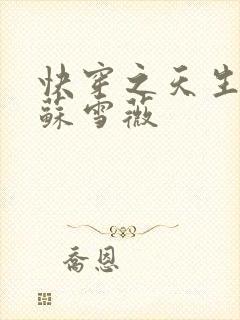 快穿之天生
蘇雪薇
喬恩